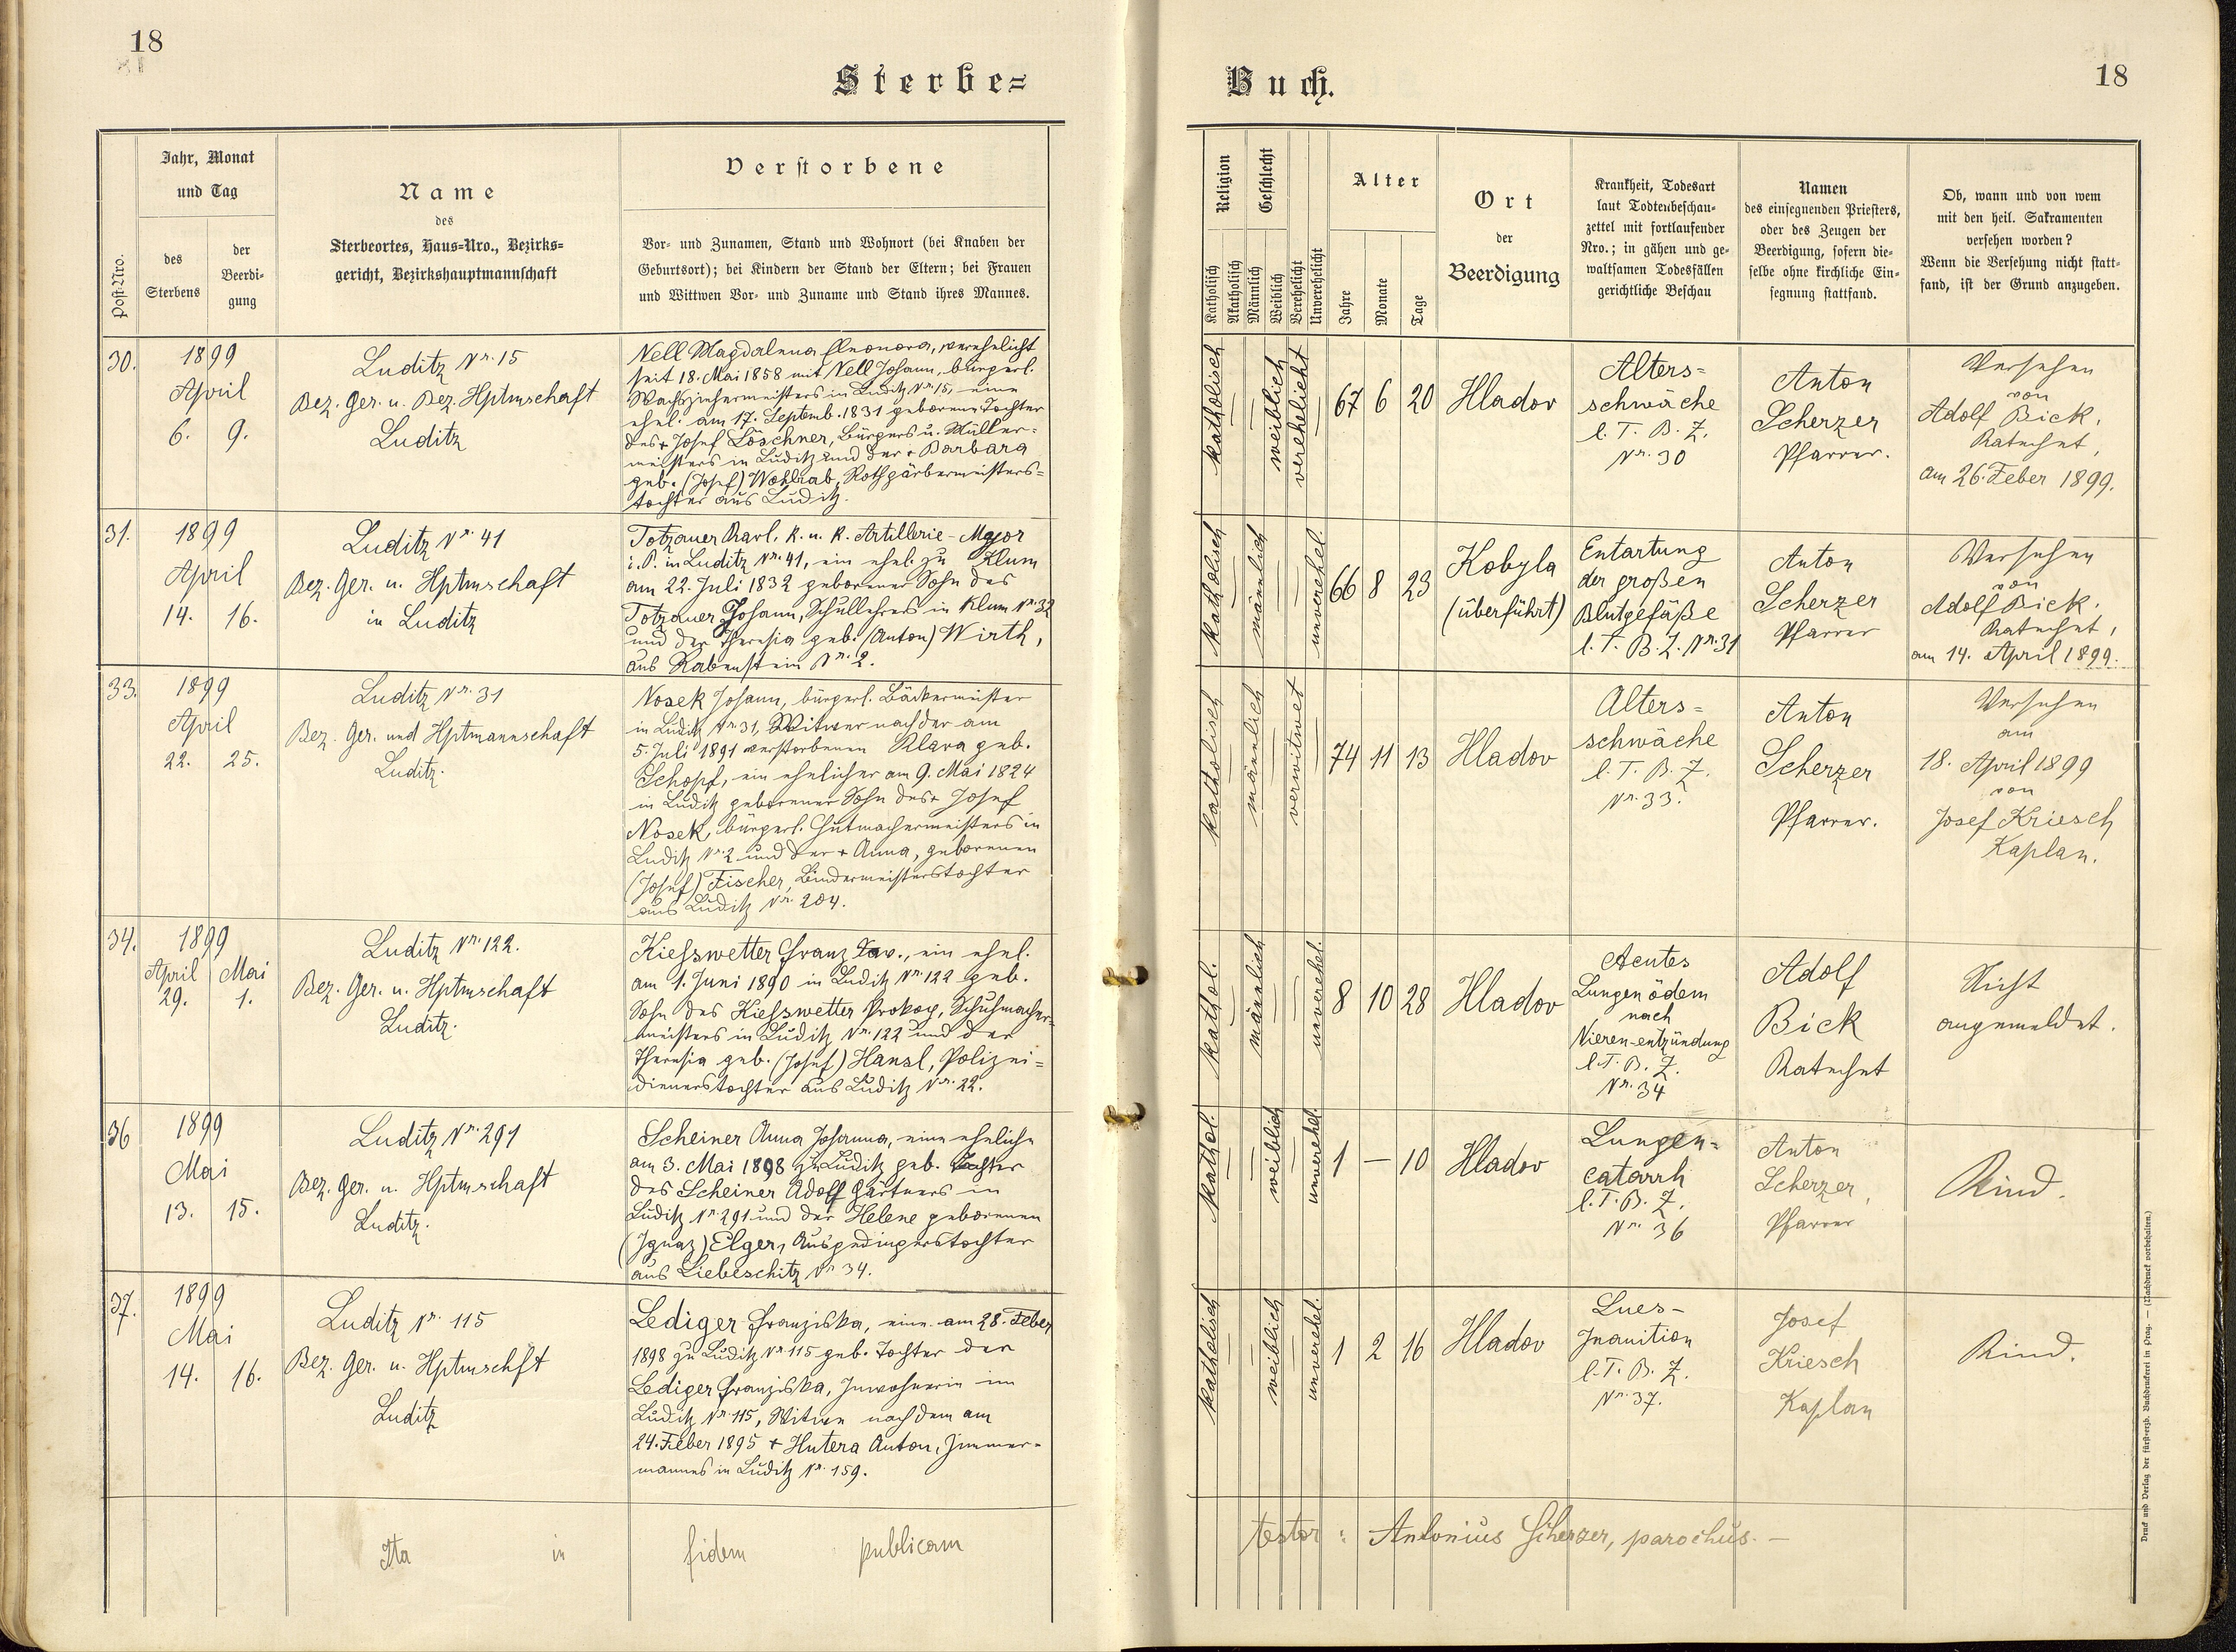 18
Sterbe=
Jahr, Monat
und Tag
Post-Nro.
des
Sterbens
der
Beerdi-
gung
Name
des
Sterbeortes, Haus=Nro., Bezirks=
gericht, Bezirkshauptmannschaft
Verstorbene
Vor- und Zunamen, Stand und Wohnort (bei Knaben der
Geburtsort); bei Kindern der Stand der Eltern; bei Frauen
und Wittwen Vor- und Zuname und Stand ihres Mannes.
30.
1899
April
6. 9.
Luditz Nr. 15
Bez. Ger. u. Bez. Hptmschaft
Luditz
Nell Magdalena Eleonora, verehelicht
seit 18. Mai 1858 mit Nell Johann, bürgerl.
Wachsziehermeisters in Luditz Nr. 15, eine
ehel. am 17. Septemb. 1831 geborene Tochter
des + Josef Löschner, Bürgers u. Müller=
meisters in Luditz und der + Barbara
geb. (Josef) Wohlrab, Rothgärbermeisters=
tochter aus Luditz.
31.
1899
April
14. 16.
Luditz Nr. 41
Bez. Ger. u. Hptmschaft
in Luditz
Totzauer Karl, k. u. k. Artillerie-Major
i. P. in Luditz Nr. 41, ein ehel. zu Klum
am 22. Juli 1832 geborener Sohn des
Totzauer Johann, Schullehrers in Klum Nr. 32
und der Theresia geb. (Anton) Wirth,
aus Rabenstein Nr. 2.
33.
1899
April
22. 25.
Luditz Nr. 31
Bez. Ger. und Hptmannschaft
Luditz.
Nosek Johann, bürgerl. Bäckermeister
in Luditz Nr 31, Witwer nach der am
5. Juli 1891 verstorbenen Klara geb.
Schopf, ein ehelicher am 9. Mai 1824
in Luditz geborener Sohn des + Josef
Nosek, bürgerl. Hutmachermeisters in
Luditz Nr. 2 und der + Anna, geborenen
(Josef) Fischer, Bindermeisterstochter
aus Luditz Nr. 204.
34.
1899
April Mai
29. 1.
Luditz Nr. 122.
Bez. Ger. u. Hptmschaft
Luditz.
Kiesswetter Franz Xav., ein ehel.
am 1. Juni 1890 in Luditz Nr. 122 geb.
Sohn des Kiesswetter Prokop, Schuhmacher=
meisters in Luditz Nr. 122 und der
Theresia geb. (Josef) Hansl, Polizei=
dienerstochter aus Luditz Nr. 22.
36
1899
Mai
13. 15.
Luditz Nr. 291
Bez. Ger. u. Hptmschaft
Luditz.
Scheiner Anna Johanna, eine eheliche
am 3. Mai 1898 zu Luditz geb. Tochter
des Scheiner Adolf Gärtners in
Luditz Nr. 291 und der Helene geborenen
(Ignaz) Elger, Ausgedingerstochter
aus Liebeschitz Nr 34.
37.
1899
Mai
14. 16.
Luditz Nr. 115
Bez. Ger. u. Hptmschft
Luditz
Lediger Franziska, eine am 28. Feber
1898 zu Luditz Nr 115 geb. Tochter der
Lediger Franziska, Inwohnerin im
Luditz Nr. 115, Witwe nach dem am
24. Feber 1895 + Hutera Anton, Zimmer=
mannes in Luditz Nr. 159.
Ita in fidem publicam
Buch.
18
Religion
Geschlecht
Katholisch
Akatholisch
Männlich
Weiblich
Verehelicht
Unverehelicht
Alter
Jahre
Monate
Tage
Ort
der
Beerdigung
Krankheit, Todesart
laut Todtenbeschau-
zettel mit fortlaufender
Nro.; in gähen und ge-
waltsamen Todesfällen
gerichtliche Beschau
Namen
des einsegnenden Priesters,
oder des Zeugen der
Beerdigung, sofern die-
selbe ohne kirchliche Ein-
segnung stattfand.
Ob, wann und von wem
mit den heil. Sakramenten
versehen worden?
Wenn die Versehung nicht statt-
fand, ist der Grund anzugeben.
katholisch
weiblich
verehelicht
67 6 20
Hladov
Alters=
schwäche
l. T. B. Z.
Nr. 30
Anton
Scherzer
Pfarrer.
Versehen
von
Adolf Bick,
Katechet,
am 26. Feber 1899.
katholisch
männlich
unverehel.
66 8 23
Kobyla
(überführt)
Entartung
der großen
Blutgefäße
l. T. B. Z. Nr. 31
Anton
Scherzer
Pfarrer
Versehen
von
Adolf Bick,
Katechet,
am 14. April 1899.
katholisch
männlich
verwitwet
74 11 13
Hladov
Alters=
schwäche
l. T. B. Z.
Nr. 33.
Anton
Scherzer
Pfarrer.
Versehen
am
18. April 1899
von
Josef Kriesch
Kaplan.
kathol.
männlich
unverehel.
8 10 28
Hladov
Acutes
Lungenödem
nach
Nieren-entzündung
l. T. B. Z.
Nr. 34
Adolf
Bick
Katechet
Nicht
angemeldet.
kathol.
weiblich
unverehel.
1 — 10
Hladov
Lungen=
catarrh
l. T. B. Z.
Nr. 36
Anton
Scherzer,
Pfarrer
Kind.
katholisch
weiblich
unverehel.
1 2 16
Hladov
Lues-
Inanition
l. T. B. Z.
Nr. 37.
Josef
Kriesch
Kaplan
Kind.
testor: Antonius Scherzer, parochus. —
Druck und Verlag der fürst-erzb. Buchdruckerei in Prag. — (Nachdruck vorbehalten.)